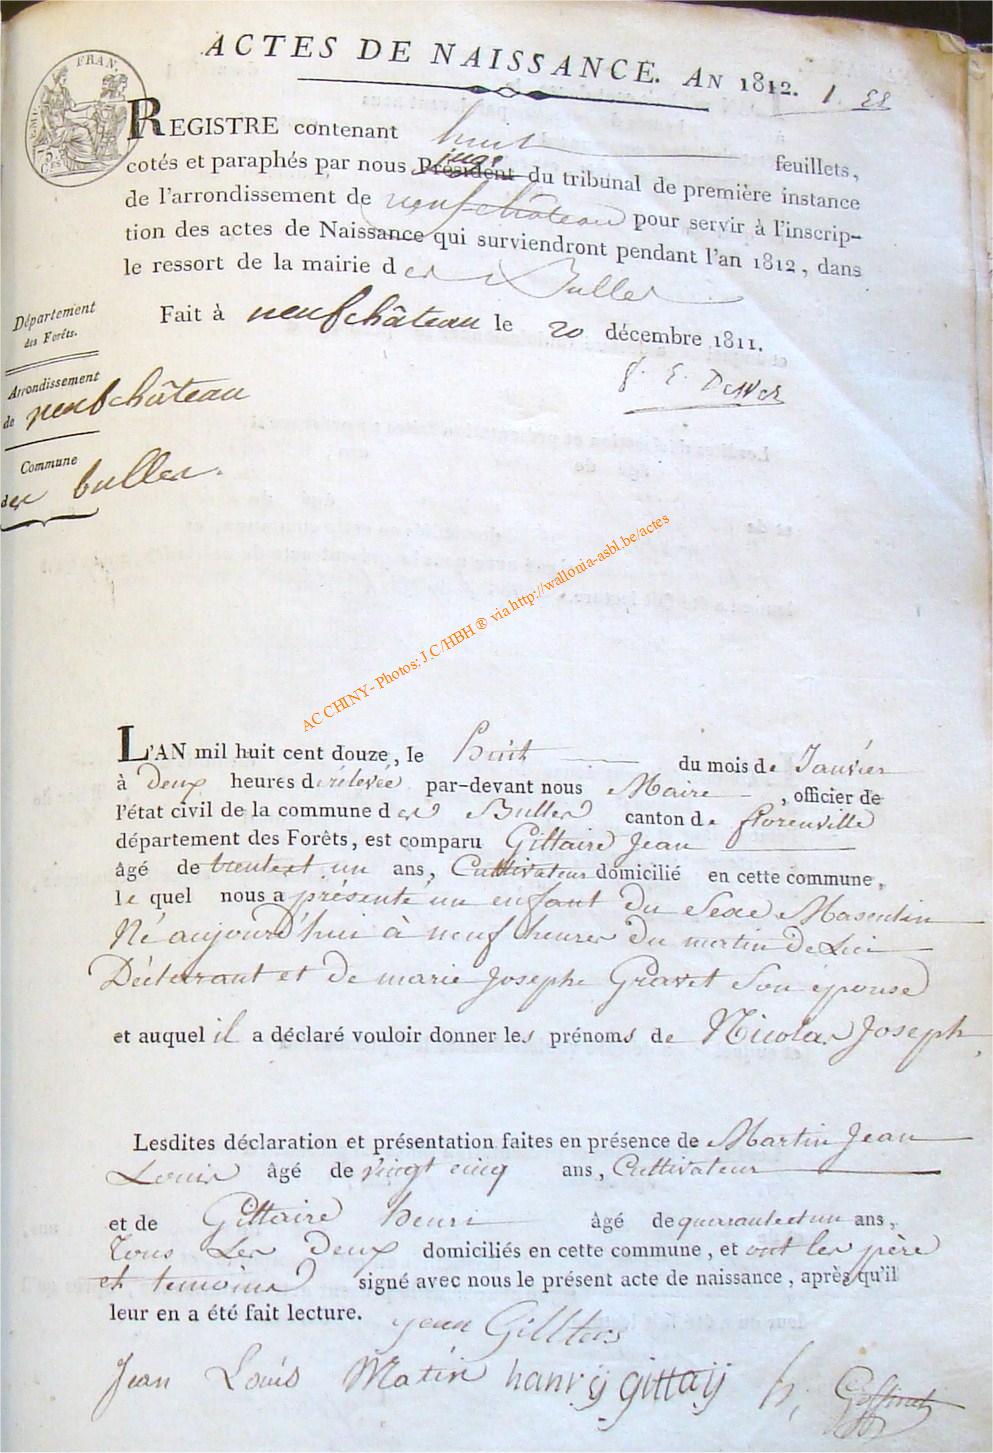 ACTES DE NAISSANCE. AN 1812.
FRAN.
REGISTRE contenant huit feuillets,
cotés et paraphés par nous Président juge du tribunal de première instance
de l'arrondissement de neufchâteau pour servir à l'inscrip-
tion des actes de Naissance qui surviendront pendant l'an 1812, dans
le ressort de la mairie des Bulles
Fait à neufchâteau le 20 décembre 1811.
Département
des Forêts.
Arrondissement
de neufchâteau
Commune
des bulles.
AC CHINY - Photos: J.C/HBH ® via http://wallonia-asbl.be/actes
L'AN mil huit cent douze, le Huit du mois de Janvier
à Deux heures de relevée par-devant nous Maire, officier de
l'état civil de la commune des Bulles canton de florenville
département des Forêts, est comparu Gittaire Jean
âgé de trentext un ans, Cultivateur domicilié en cette commune,
le quel nous a présenté un enfant du Sexe Masculin
Né aujourd'hui à neuf heures du matin de Lui
Déclarant et de marie Josephe Gravet Son épouse
et auquel il a déclaré vouloir donner les prénoms de Nicolas Joseph
Lesdites déclaration et présentation faites en présence de Martin Jean
Louis âgé de vingt cinq ans, Cultivateur
et de Gittaire henri âgé de quarante et un ans,
Tous Les Deux domiciliés en cette commune, et ont les père
et temoins signé avec nous le présent acte de naissance, après qu'il
leur en a été fait lecture.
Jean Louis Matin hanrÿ gittaÿ